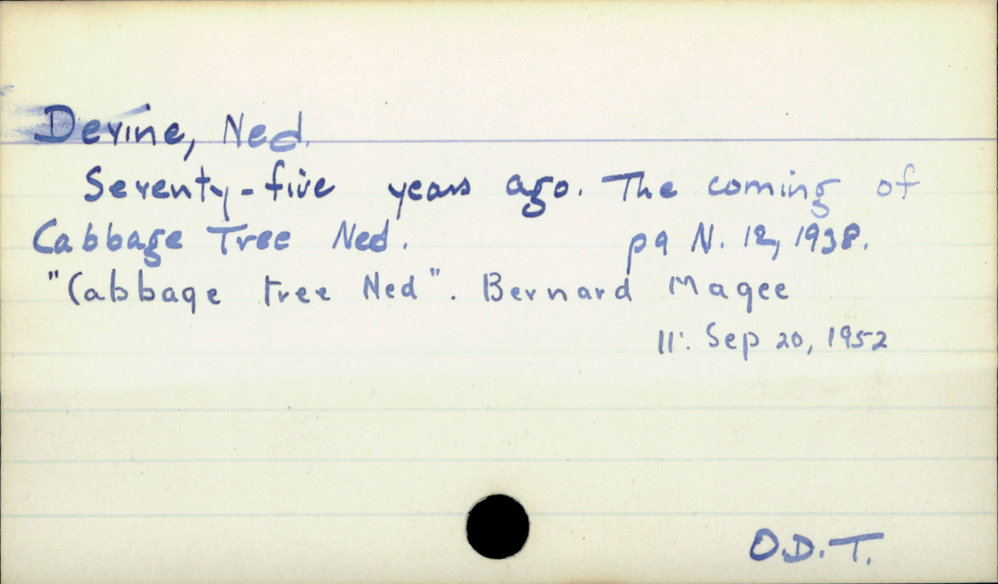 Devine, Ned.
Seventy-five years ago. The coming of
Cabbage Tree Ned. p9 N. 12, 1938.
"Cabbage tree Ned". Bernard Magee
11: Sep 20, 1952
O.D.T.